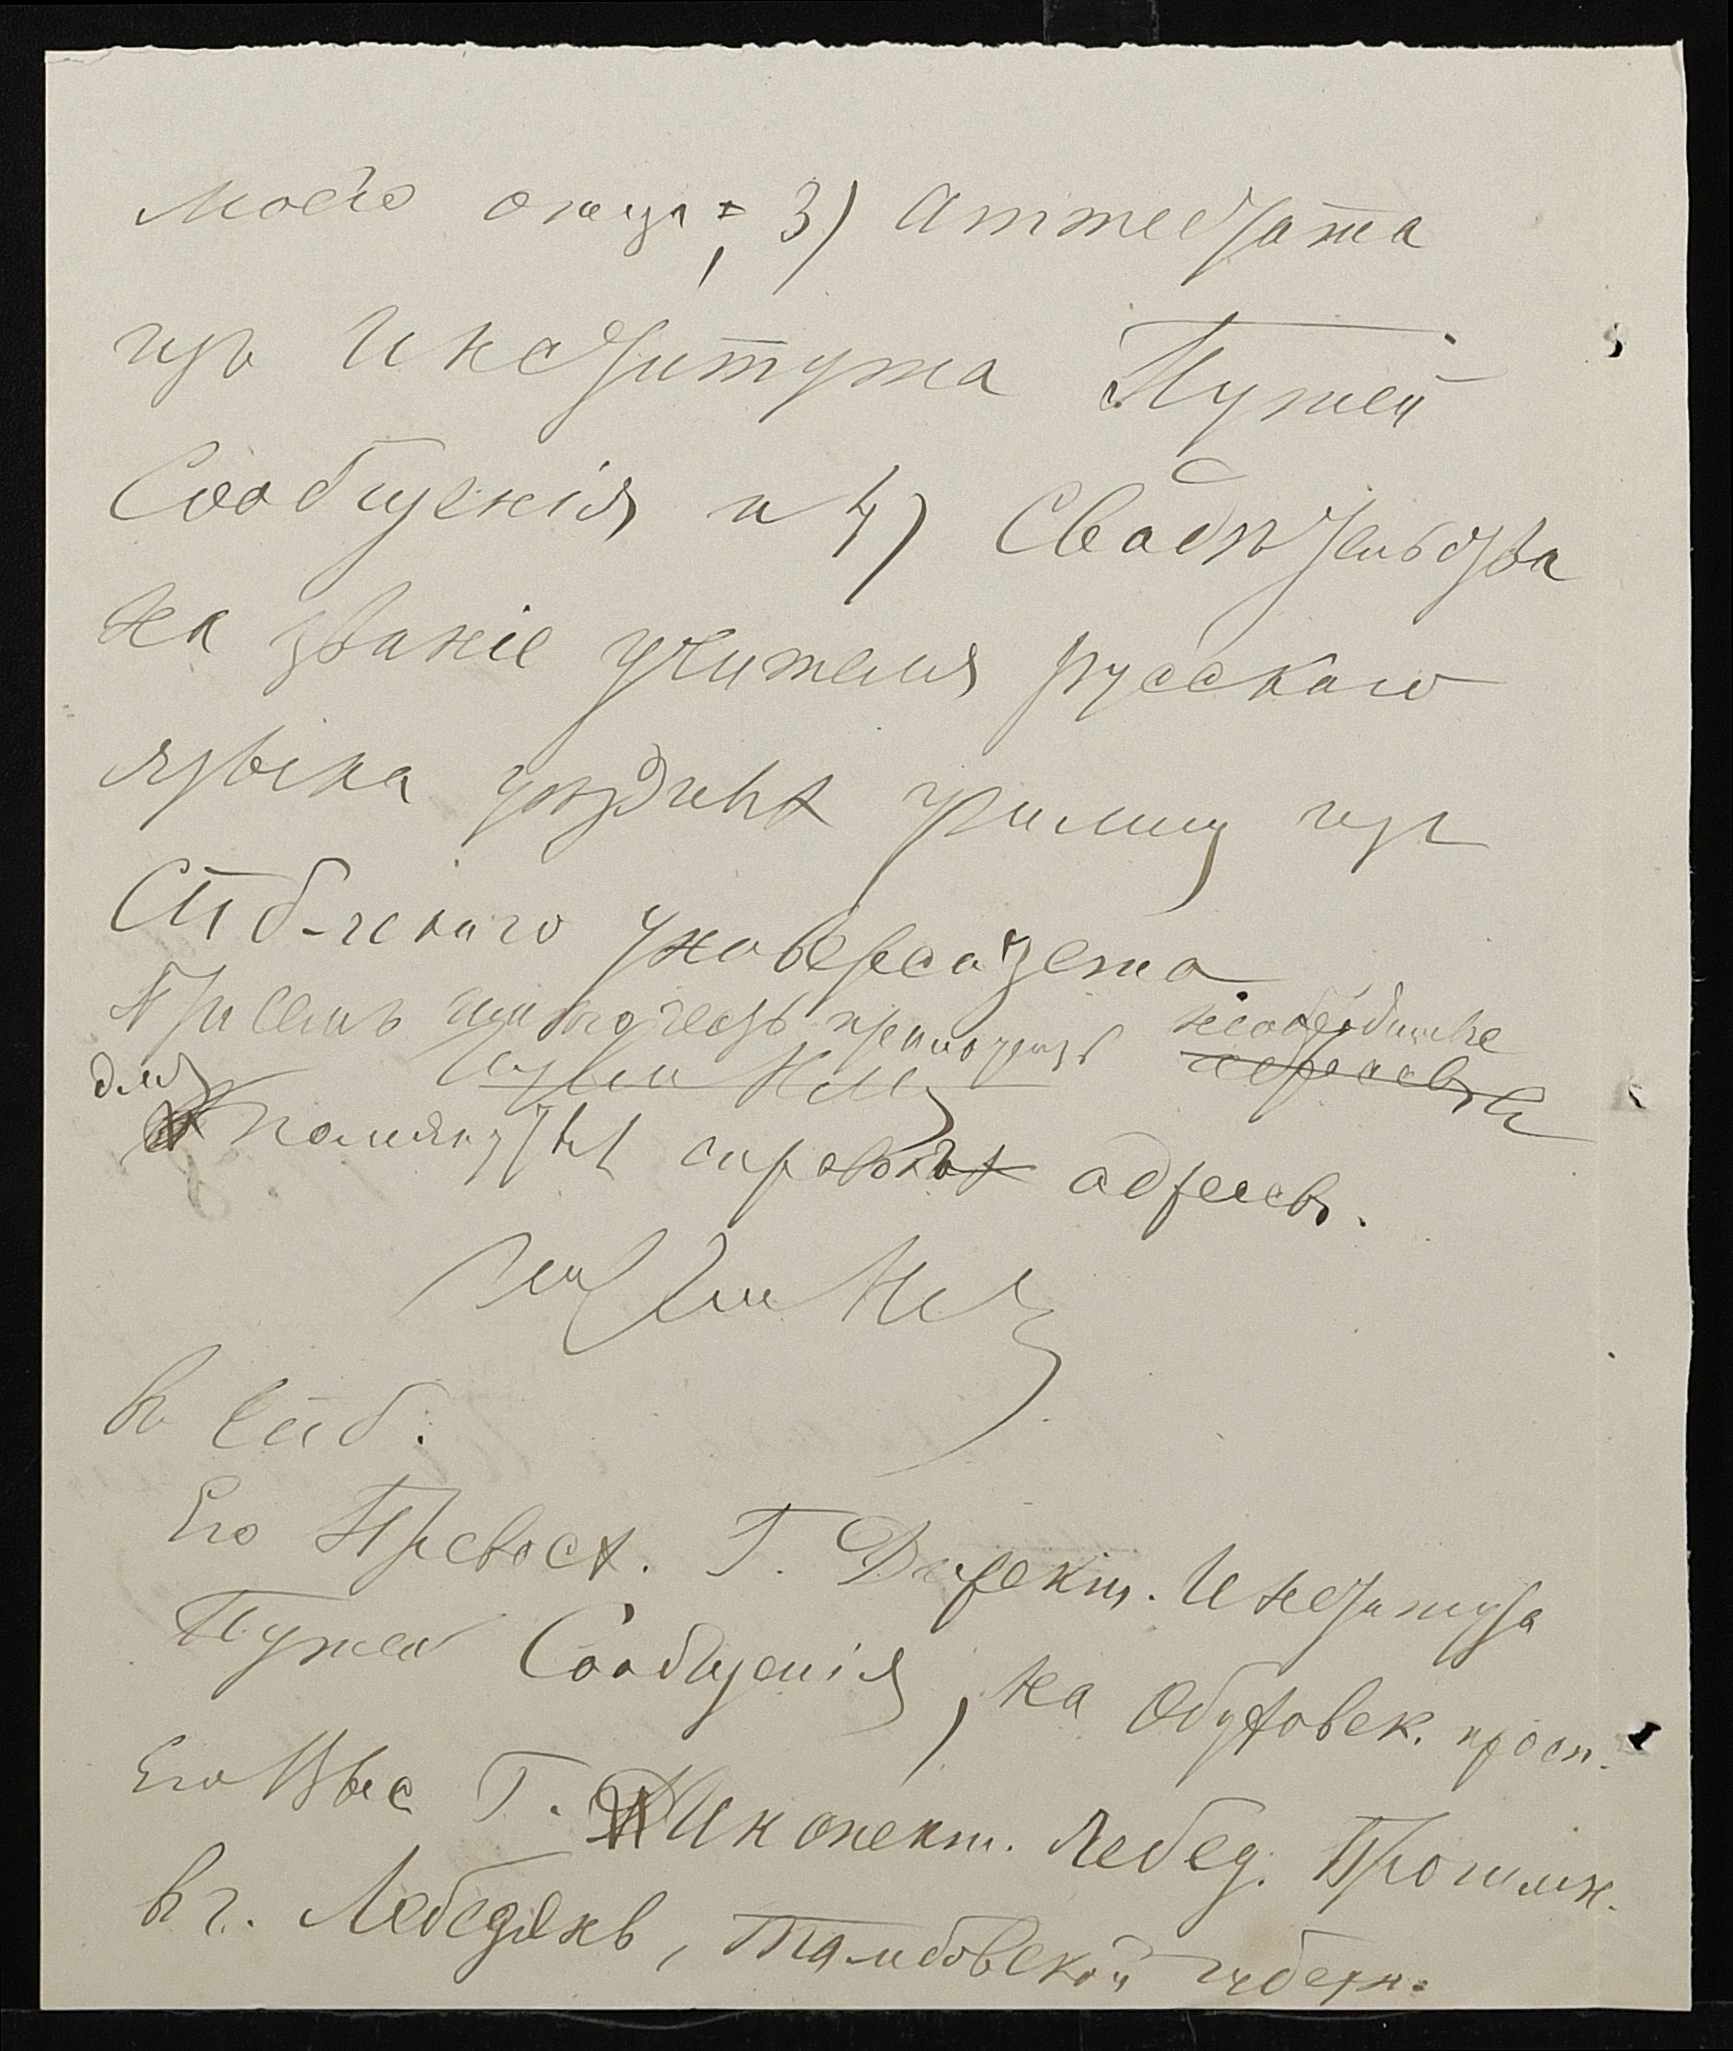 моего отца; 3) Аттестата
изъ Института Путей
Сообщенія и 4) Свидѣтельства
на званіе учителя русскаго
языка уѣздныхъ училищ изъ
СПб-скаго университета
При семъ имѣю честь приложить необходимые
для
помянутыхъ справокъ адресы.
въ Спб.
Его Превосх. Г. Директ. Института
Путей Сообщенія, на Обуховск. просп.
Его Выс Г. Инспект. Лебед. Прогимн.
в г. Лебедянь, Тамбовской губерн.